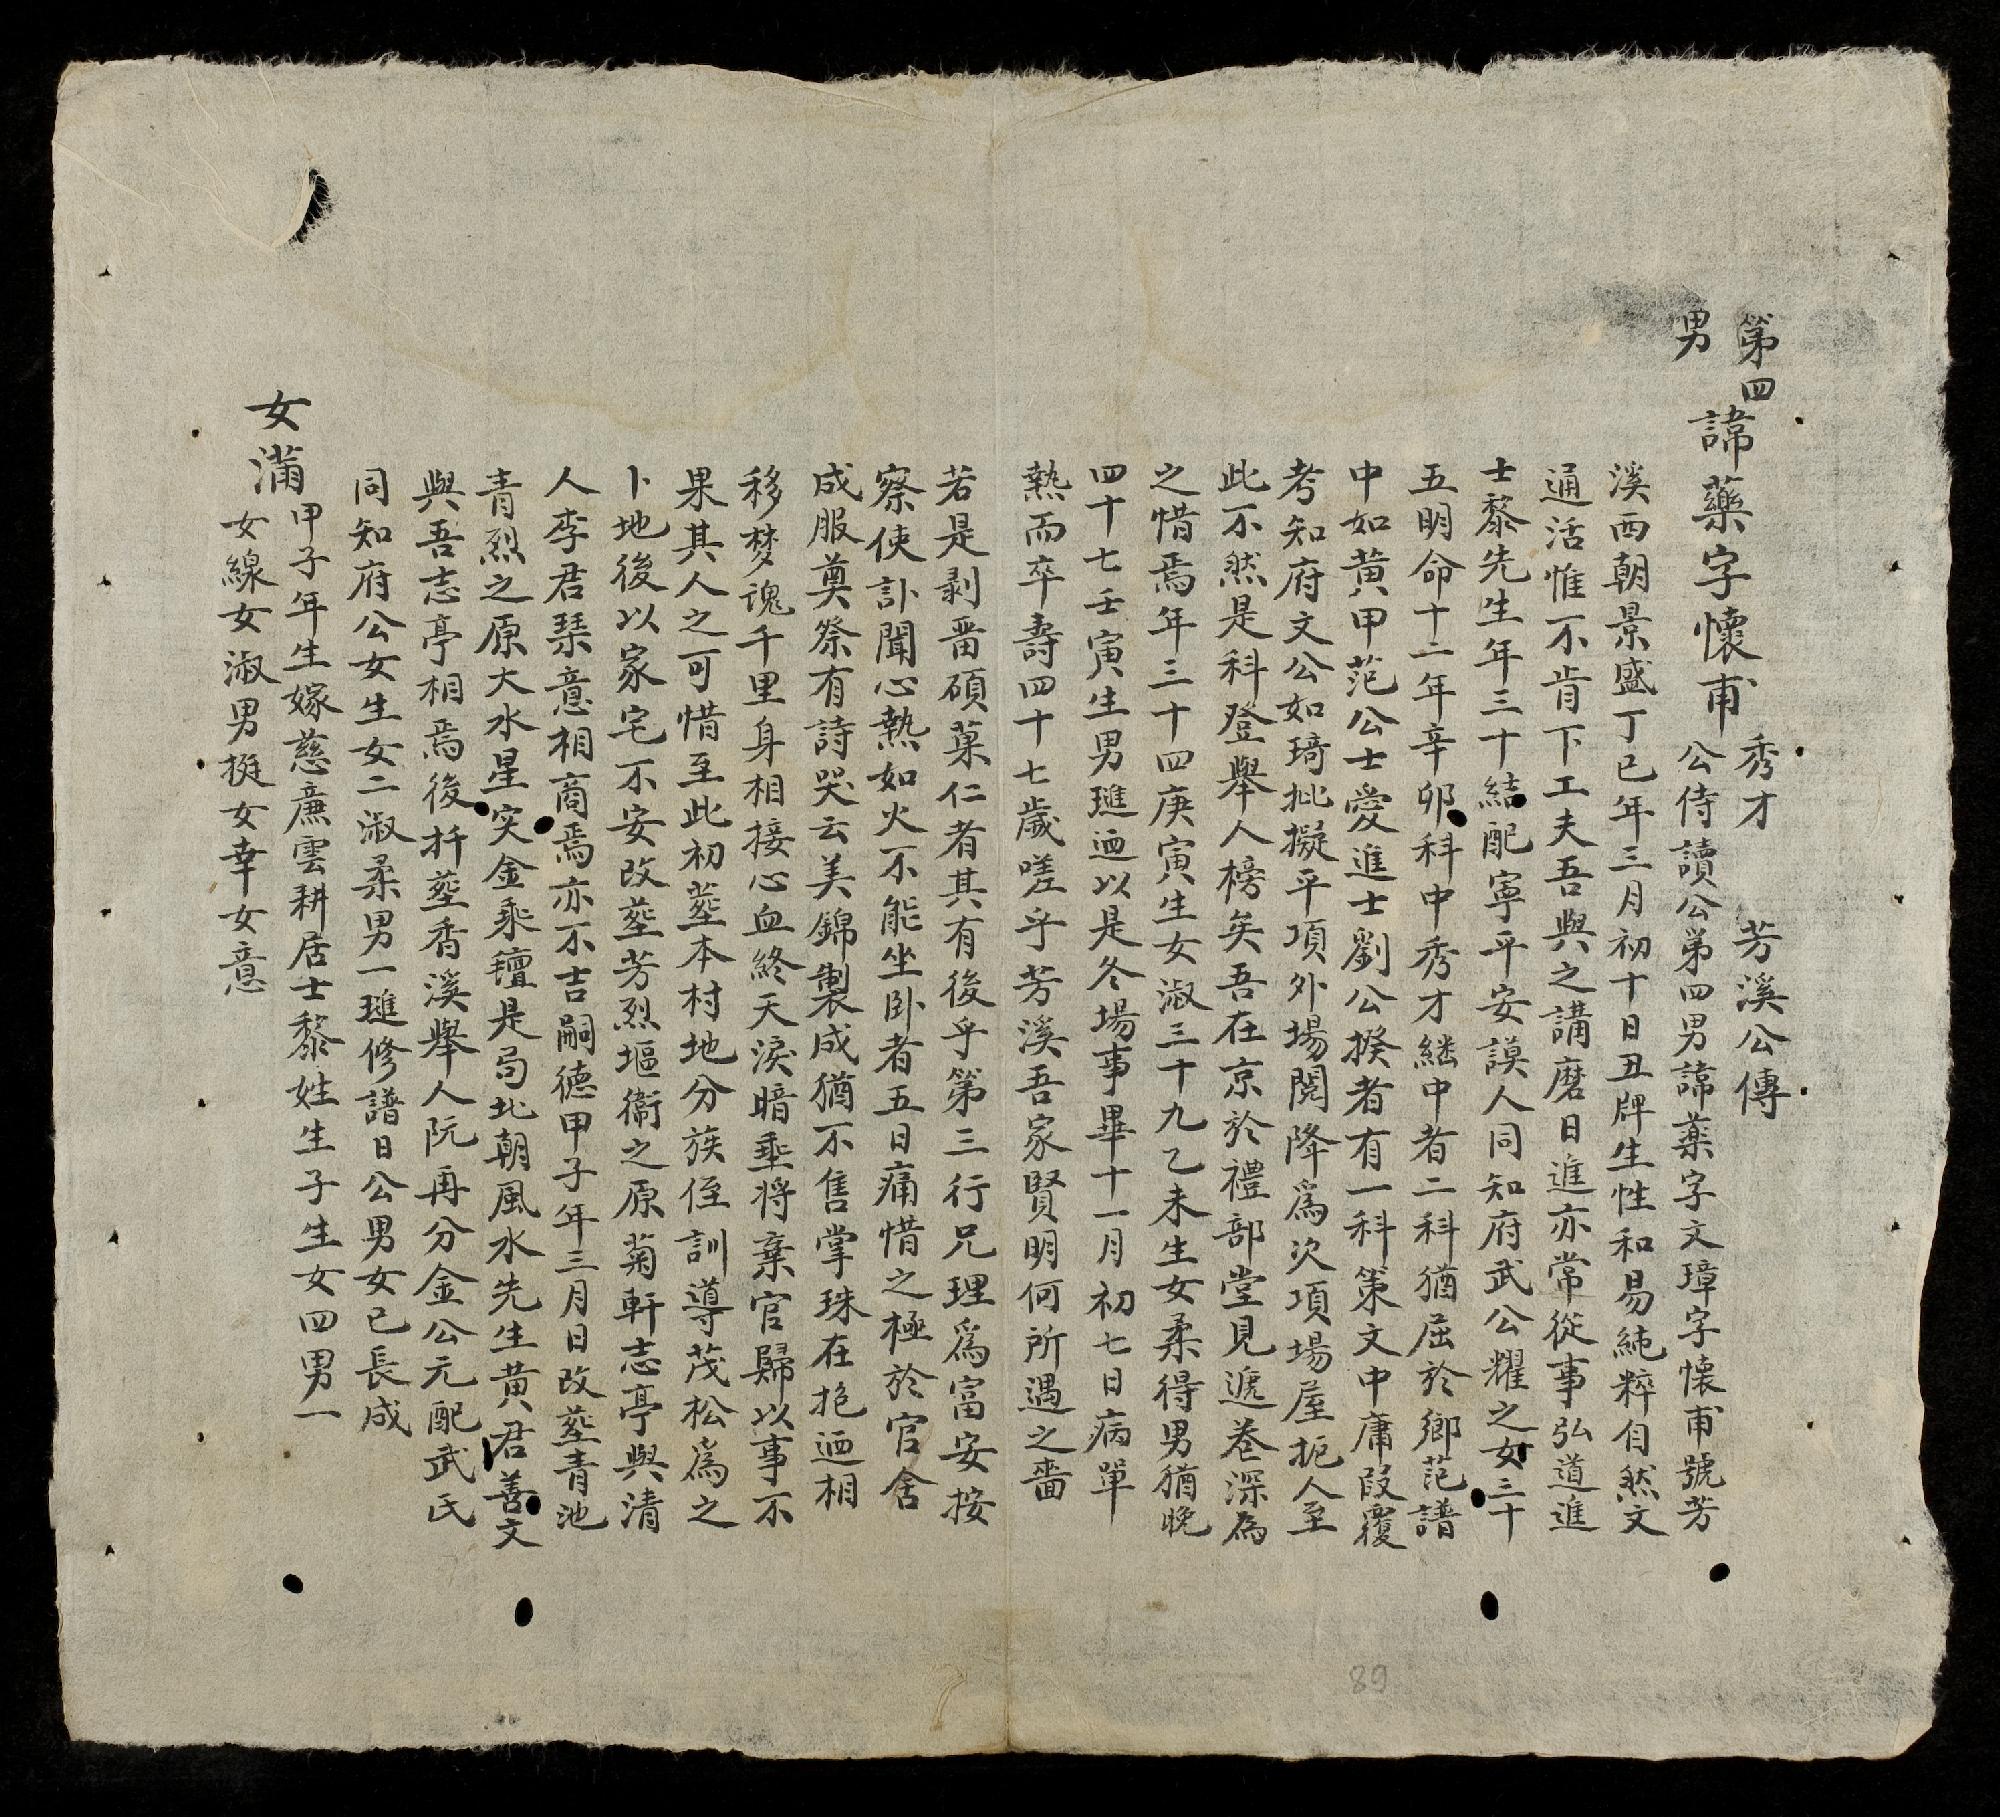 第四男
諱藥字懷甫 秀才 芳溪公傳
公侍讀公第四男諱藥字文璋字懷甫號芳
溪西朝景盛丁巳年三月初十日丑牌生性和易純粹自然文
通活惟不肯下工夫吾與之講磨日進亦常從事弘道進
士黎先生年三十結配寧平安謨人同知府武公耀之女三十
五明命十二年辛卯科中秀才繼中者二科猶屈於鄉范譜
中如黃甲范公士愛進士劉公揆者有一科策文中庸段覆
考知府文公如琦批擬平項外場閱降爲次項場屋扼人至
此不然是科登舉人榜矣吾在京於禮部堂見遞卷深為
之惜焉年三十四庚寅生女淑三十九乙未生女柔得男猶晚
四十七壬寅生男璡迺以是冬場事畢十一月初七日病單
熱而卒壽四十七歲嗟乎芳溪吾家賢明何所遇之嗇
若是剥啬碩菓仁者其有後乎第三行兄理爲富安按
察使訃聞心熱如火不能坐卧者五日痛惜之極於官舍
成服奠祭有詩哭云美錦製成猶不售掌珠在抱迺相
移梦魂千里身相接心血終天淚暗垂将棄官歸以事不
果其人之可惜至此初塟本村地分族侄訓導茂松爲之
卜地後以家宅不安改塟芳烈塸衞之原菊軒志亭與清
人李君琹意相商焉亦不吉嗣德甲子年三月日改塟青池
青烈之原大水星突金乘䡰是局北朝風水先生黄君善文
與吾志亭相焉後扦塟香溪舉人阮再分金公元配武氏
同知府公女生女二淑柔男一璡修譜日公男女已長成
女滿 甲子年生嫁慈廉雲耕居士黎姓生子生女四男一
女線女淑男挺女幸女意
89